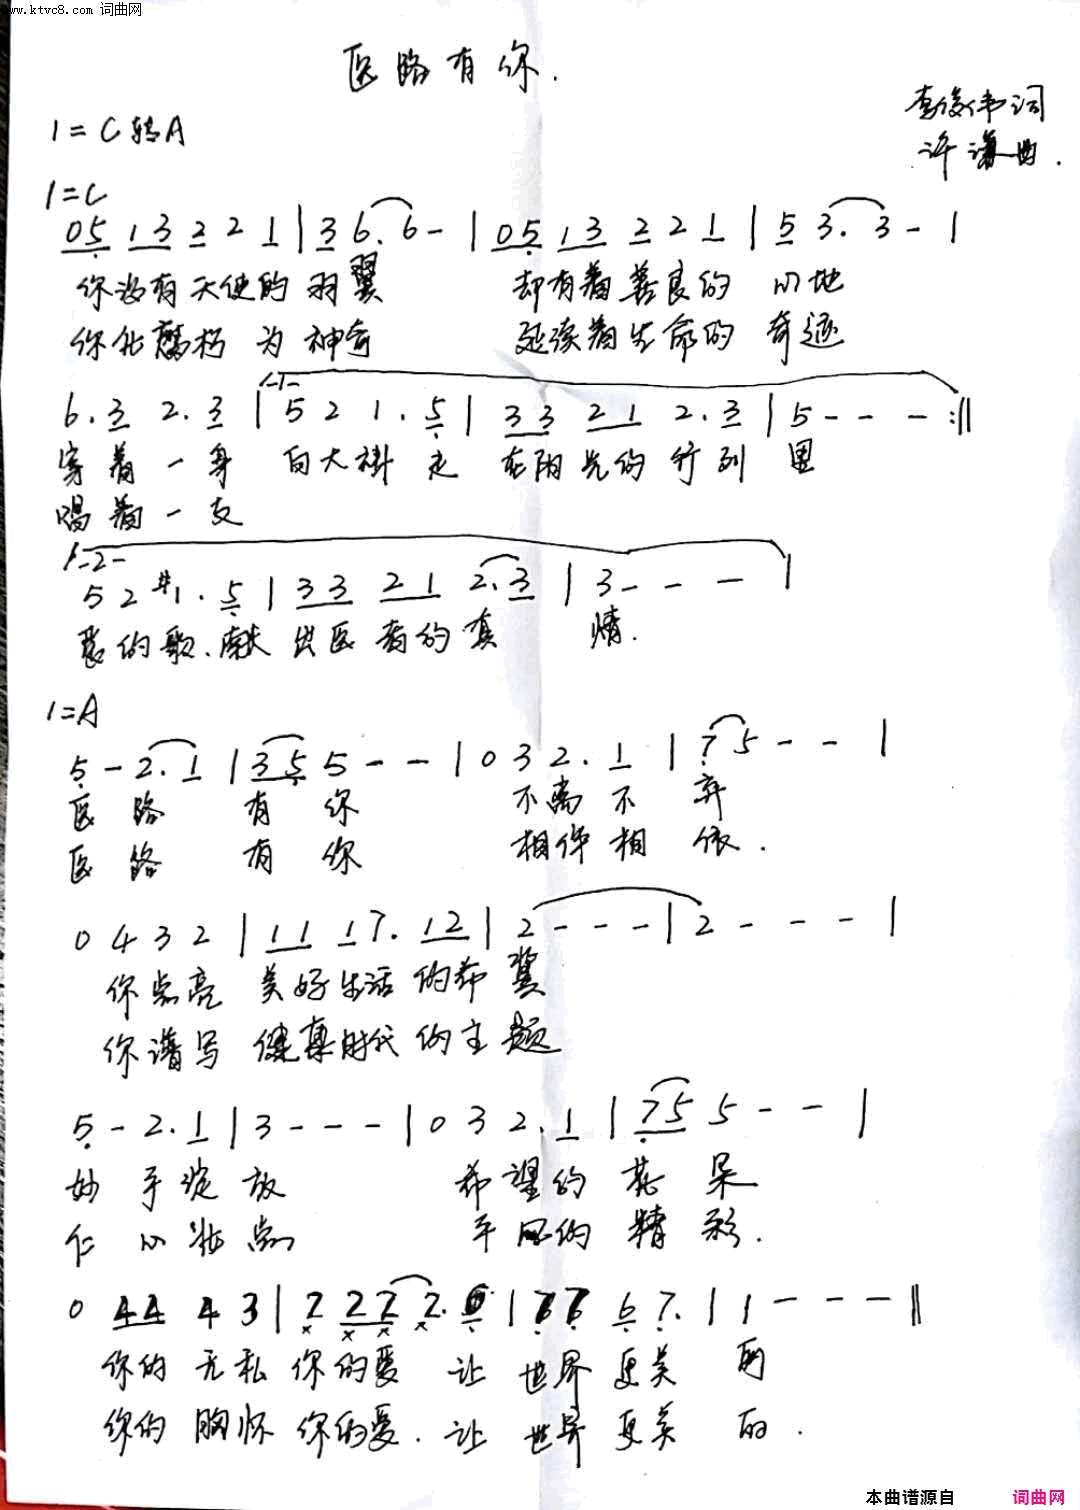 www.ktvc8.com 词曲网
医路有你.
李俊伟词
1=C转A
许谦曲.
1=C
05 13 2 2 1 | 3 6. 6 - | 05 13 2 2 1 | 5 3. 3 - |
你没有天使的羽翼 却有着善良的心地
你化腐朽为神奇 延续着生命的奇迹
1-1-
6. 3 2. 3 | 5 2 1. 5 | 33 21 2. 3 | 5 - - - :||
穿着一身白大褂走在阳光的行列里
唱着一支
1-2-
5 2 #1. 5 | 33 21 2. 3 | 3 - - - |
爱的歌.献出医者的真情.
1=A
5 - 2. 1 | 35 5 - - | 0 3 2. 1 | 7 5 - - |
医路有你 不离不弃
医路有你 相伴相依.
0 4 3 2 | 11 17. 12 | 2 - - - | 2 - - - |
你点亮美好生活的希冀
你谱写健康时代的主题
5 - 2. 1 | 3 - - - | 0 3 2. 1 | 75 5 - - |
妙手绽放 希望的花朵
仁心妆点 平凡的精彩.
0 44 4 3 | 2 222. 6 | 6 7. | 1 - - - ||
你的无私你的爱 让世界更美丽
你的胸怀你的爱.让世界更美丽.
本曲谱源自 词曲网